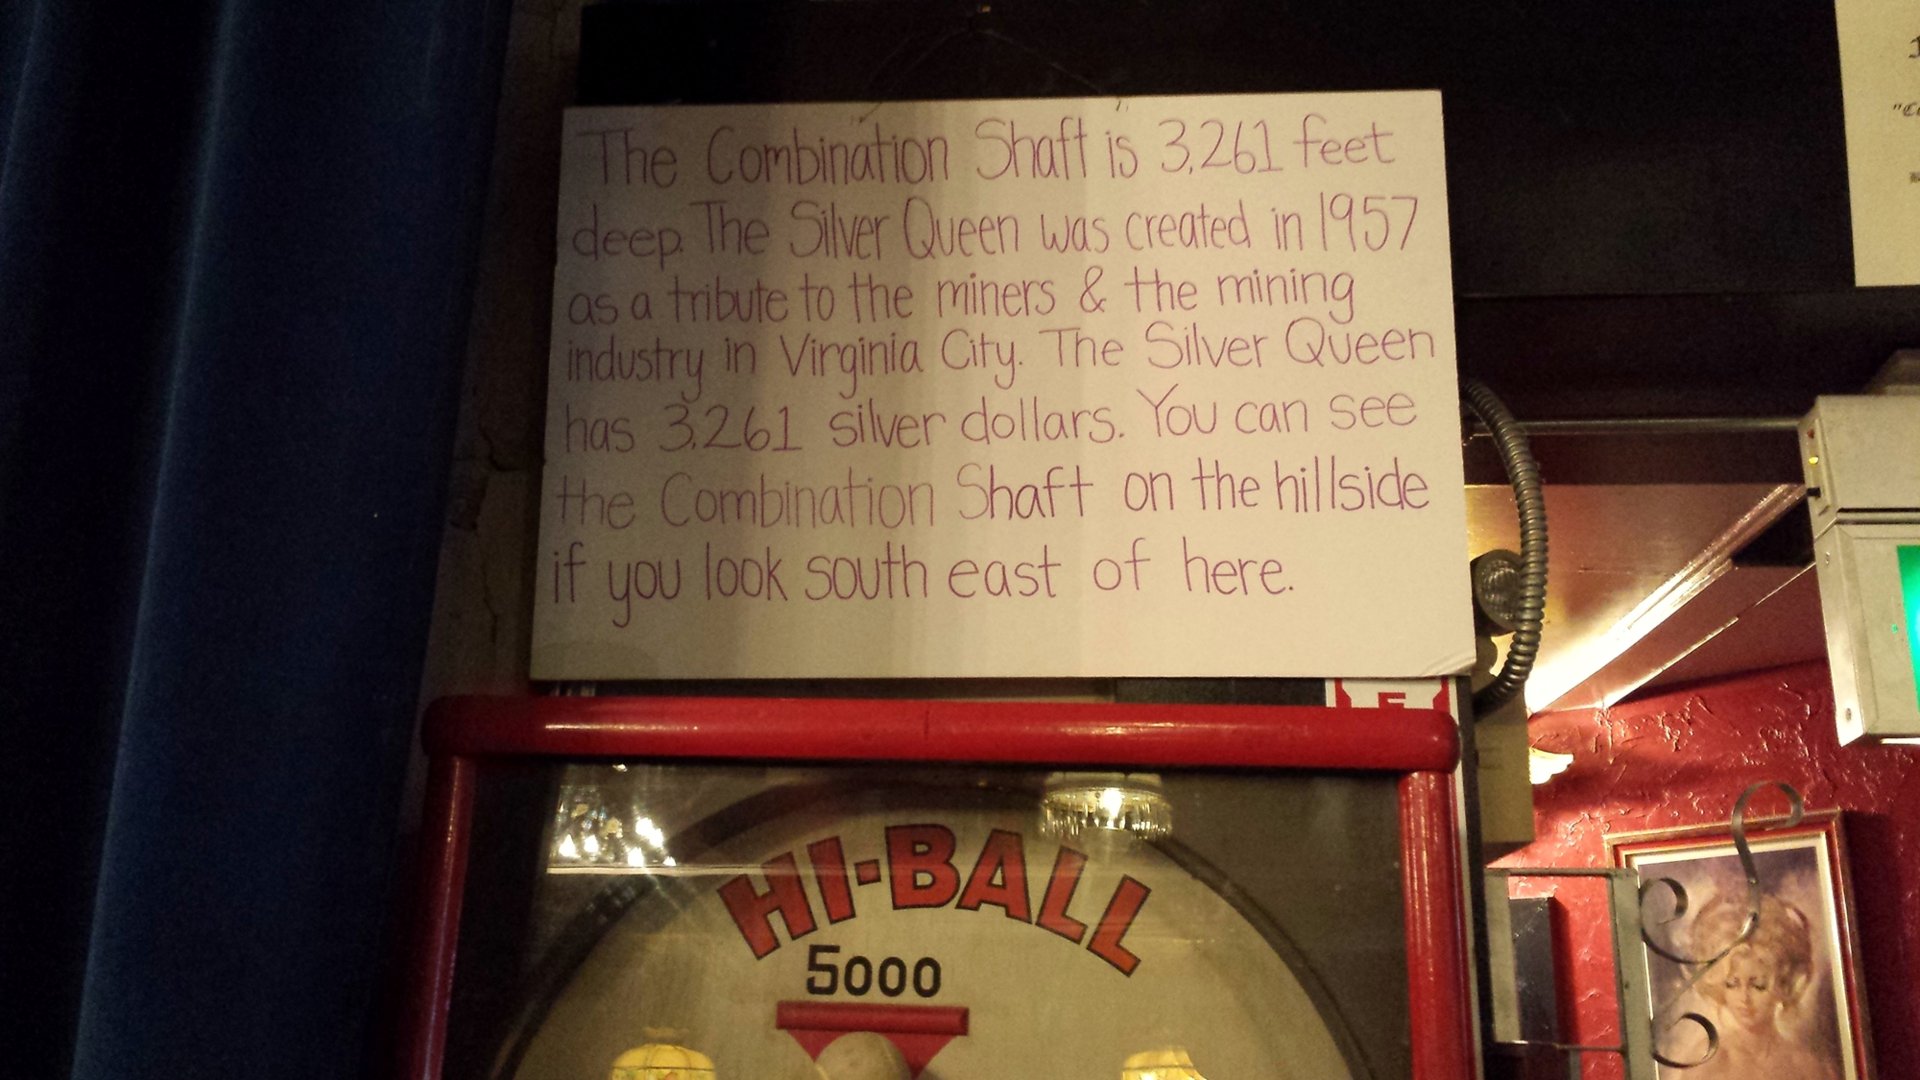 The Combination Shaft is 3,261 feet
deep. The Silver Queen was created in 1957
as a tribute to the miners & the mining
industry in Virginia City. The Silver Queen
has 3,261 silver dollars. You can see
the Combination Shaft on the hillside
if you look south east of here.
HI-BALL
5000